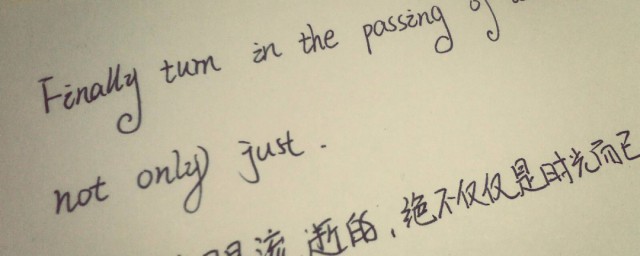 Finally turn in the passing of
not only just.
流逝的,绝不仅仅是时光而已